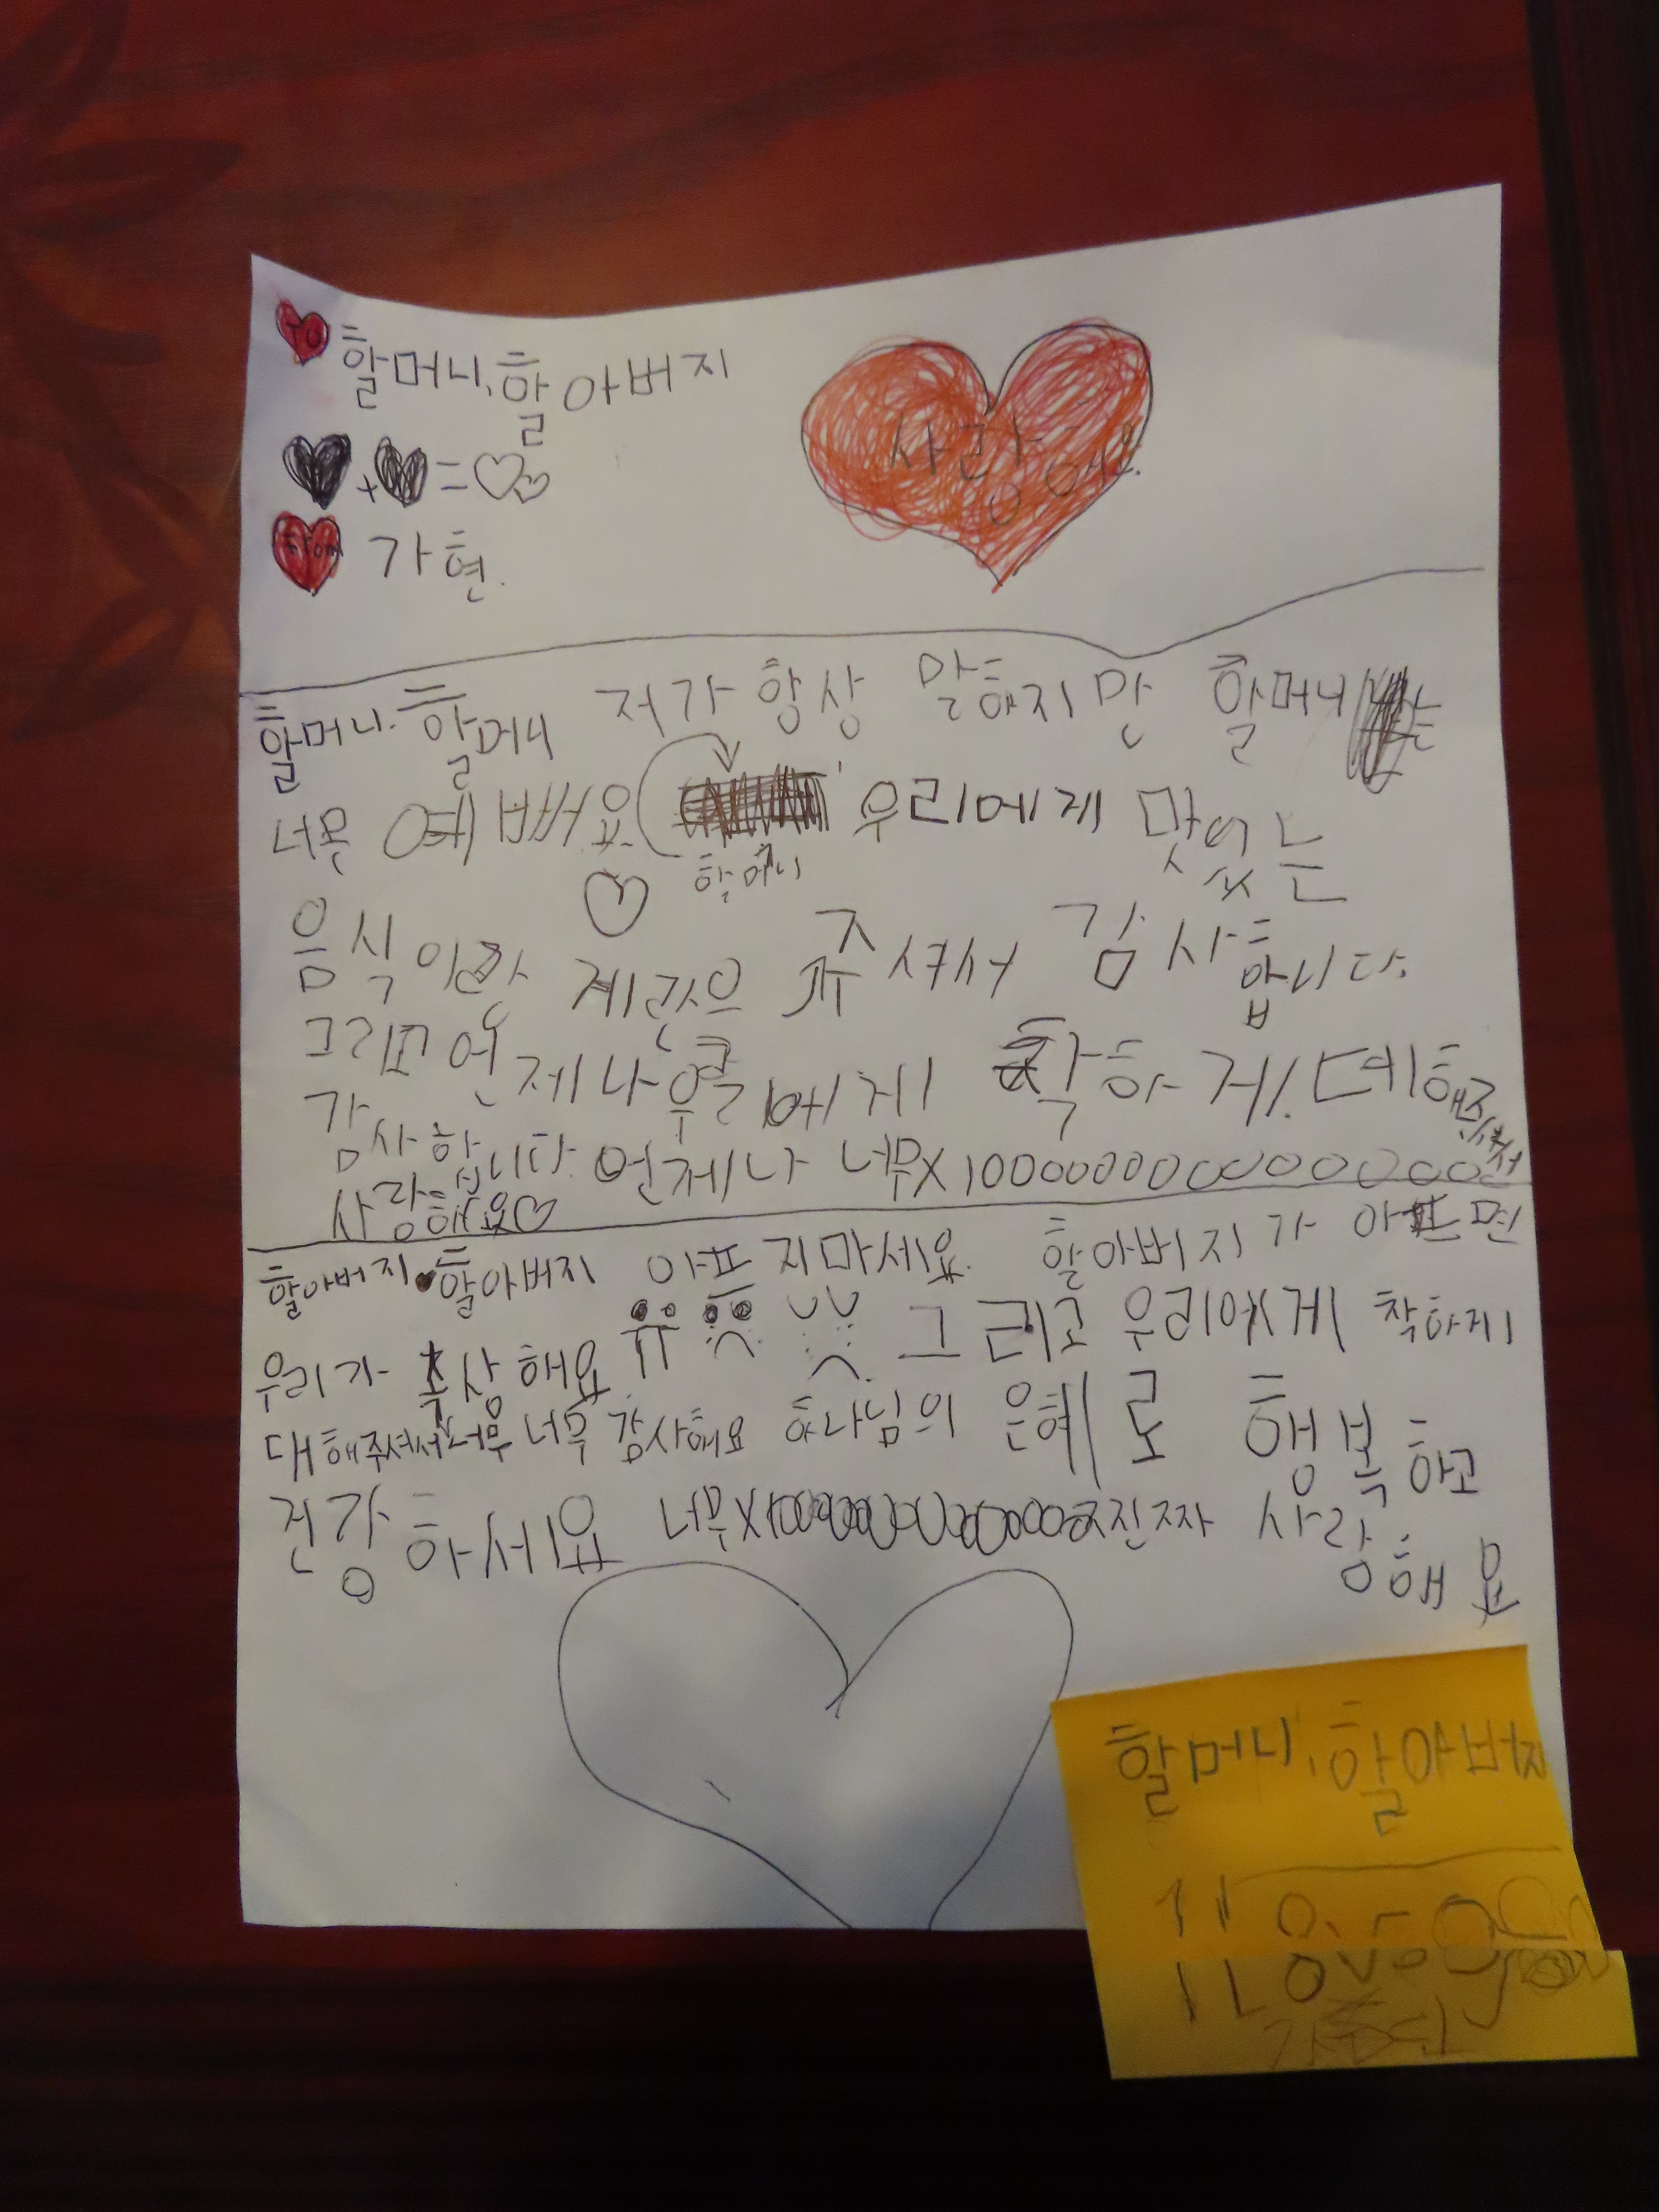 To 할머니, 할아버지
사랑해!
+ =
From 가현.
할머니. 할머니 저가 항상 말하지만 할머니는
너무 예뻐요 우리에게 맛있는
할머니
음식이랑 계란으 주셔서 감사합니다.
그리고 언제나 에게 착하게 데해주셔서
감사합니다. 언제나 너무X100000000000000
사랑해요♡
할아버지. 할아버지 아프지마세요. 할아버지가 아프면
우리가 속상해요 ㅠㅠ 그리고 우리에게 착하게
대해주셔서 너무 너무 감사해요 하나님의 은혜로 행복하고
건강하세요 너무X 진짜 사랑해요
할머니, 할아버지